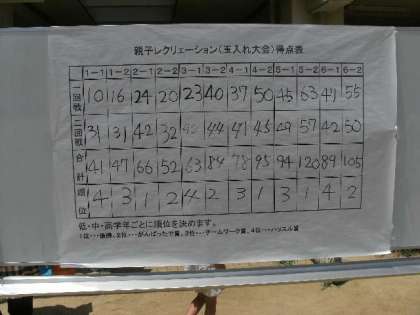 親子レクリェーション(玉入れ大会)得点表
1-1 1-2 2-1 2-2 3-1 3-2 4-1 4-2 5-1 5-2 6-1 6-2
一回戦 10 16 24 20 23 40 37 50 45 63 47 55
二回戦 31 31 42 32 40 44 41 45 49 57 42 50
合計 41 47 66 52 63 84 78 95 94 120 89 105
順位 4 3 1 2 4 2 3 1 3 1 4 2
低・中・高学年ごとに順位を決めます。
1位・・・優勝、2位・・・がんばったで賞、3位・・・チームワーク賞、4位・・・ハッスル賞